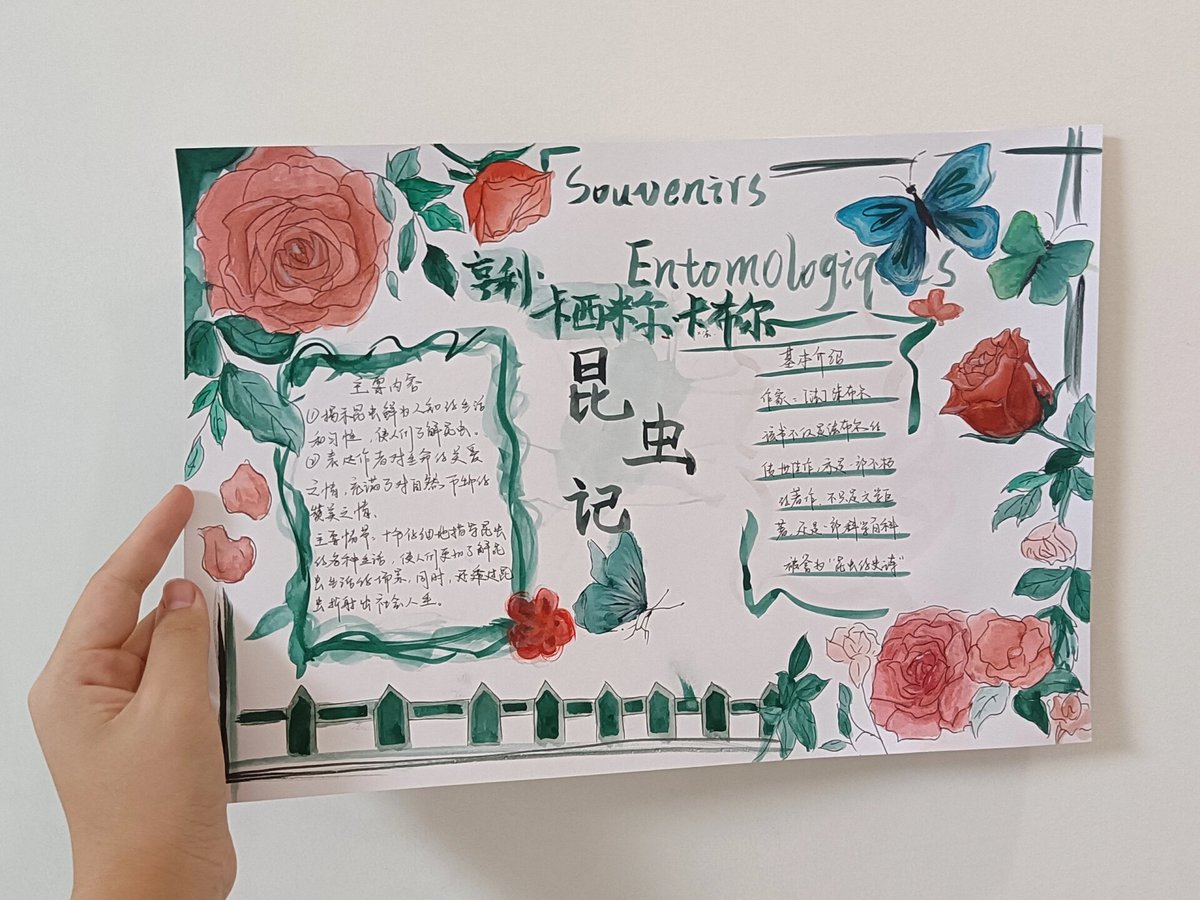 Souvenirs
Entomologiques
亨利·
卡西米尔·卡布尔
昆
虫
记
主要内容
①揭示昆虫鲜为人知的生活
和习性,使人们了解昆虫。
②表达作者对生命的关爱
之情,充满了对自然万物的
赞美之情。
主要情节:十分仔细地指导昆虫
的各种生活,使人们更加了解昆
虫生活的情景,同时,还透过昆
虫折射出社会人生。
基本介绍
作家:[法]法布尔
该书不仅是法布尔的
传世佳作,亦是一部不朽
的著作,不只是文学巨
著,还是一部科学百科
被誉为"昆虫的史诗"